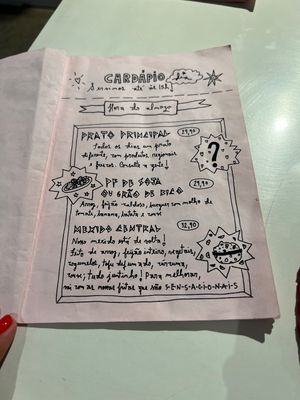 CARDÁPIO
Servimos até às 15h!
Hora do almoço
PRATO PRINCIPAL 29,90
Todos os dias um prato
diferente, com produtos regionais
e frescos. Consulte a gente!
?
PF DE SOJA 29,90
OU GRÃO DE BICO
Arroz, feijão caldoso, burguer com molho de
tomate, banana, batata e couve
MEXIDO CENTRAL 32,90
Nosso mexido está de volta!
Leito de arroz, feijão inteiro, vegetais,
cogumelos, tofu defumado, cúrcuma,
couve; tudo juntinho! Para melhorar,
vai com as nossas fritas que são S-E-N-S-A-C-I-O-N-A-I-S